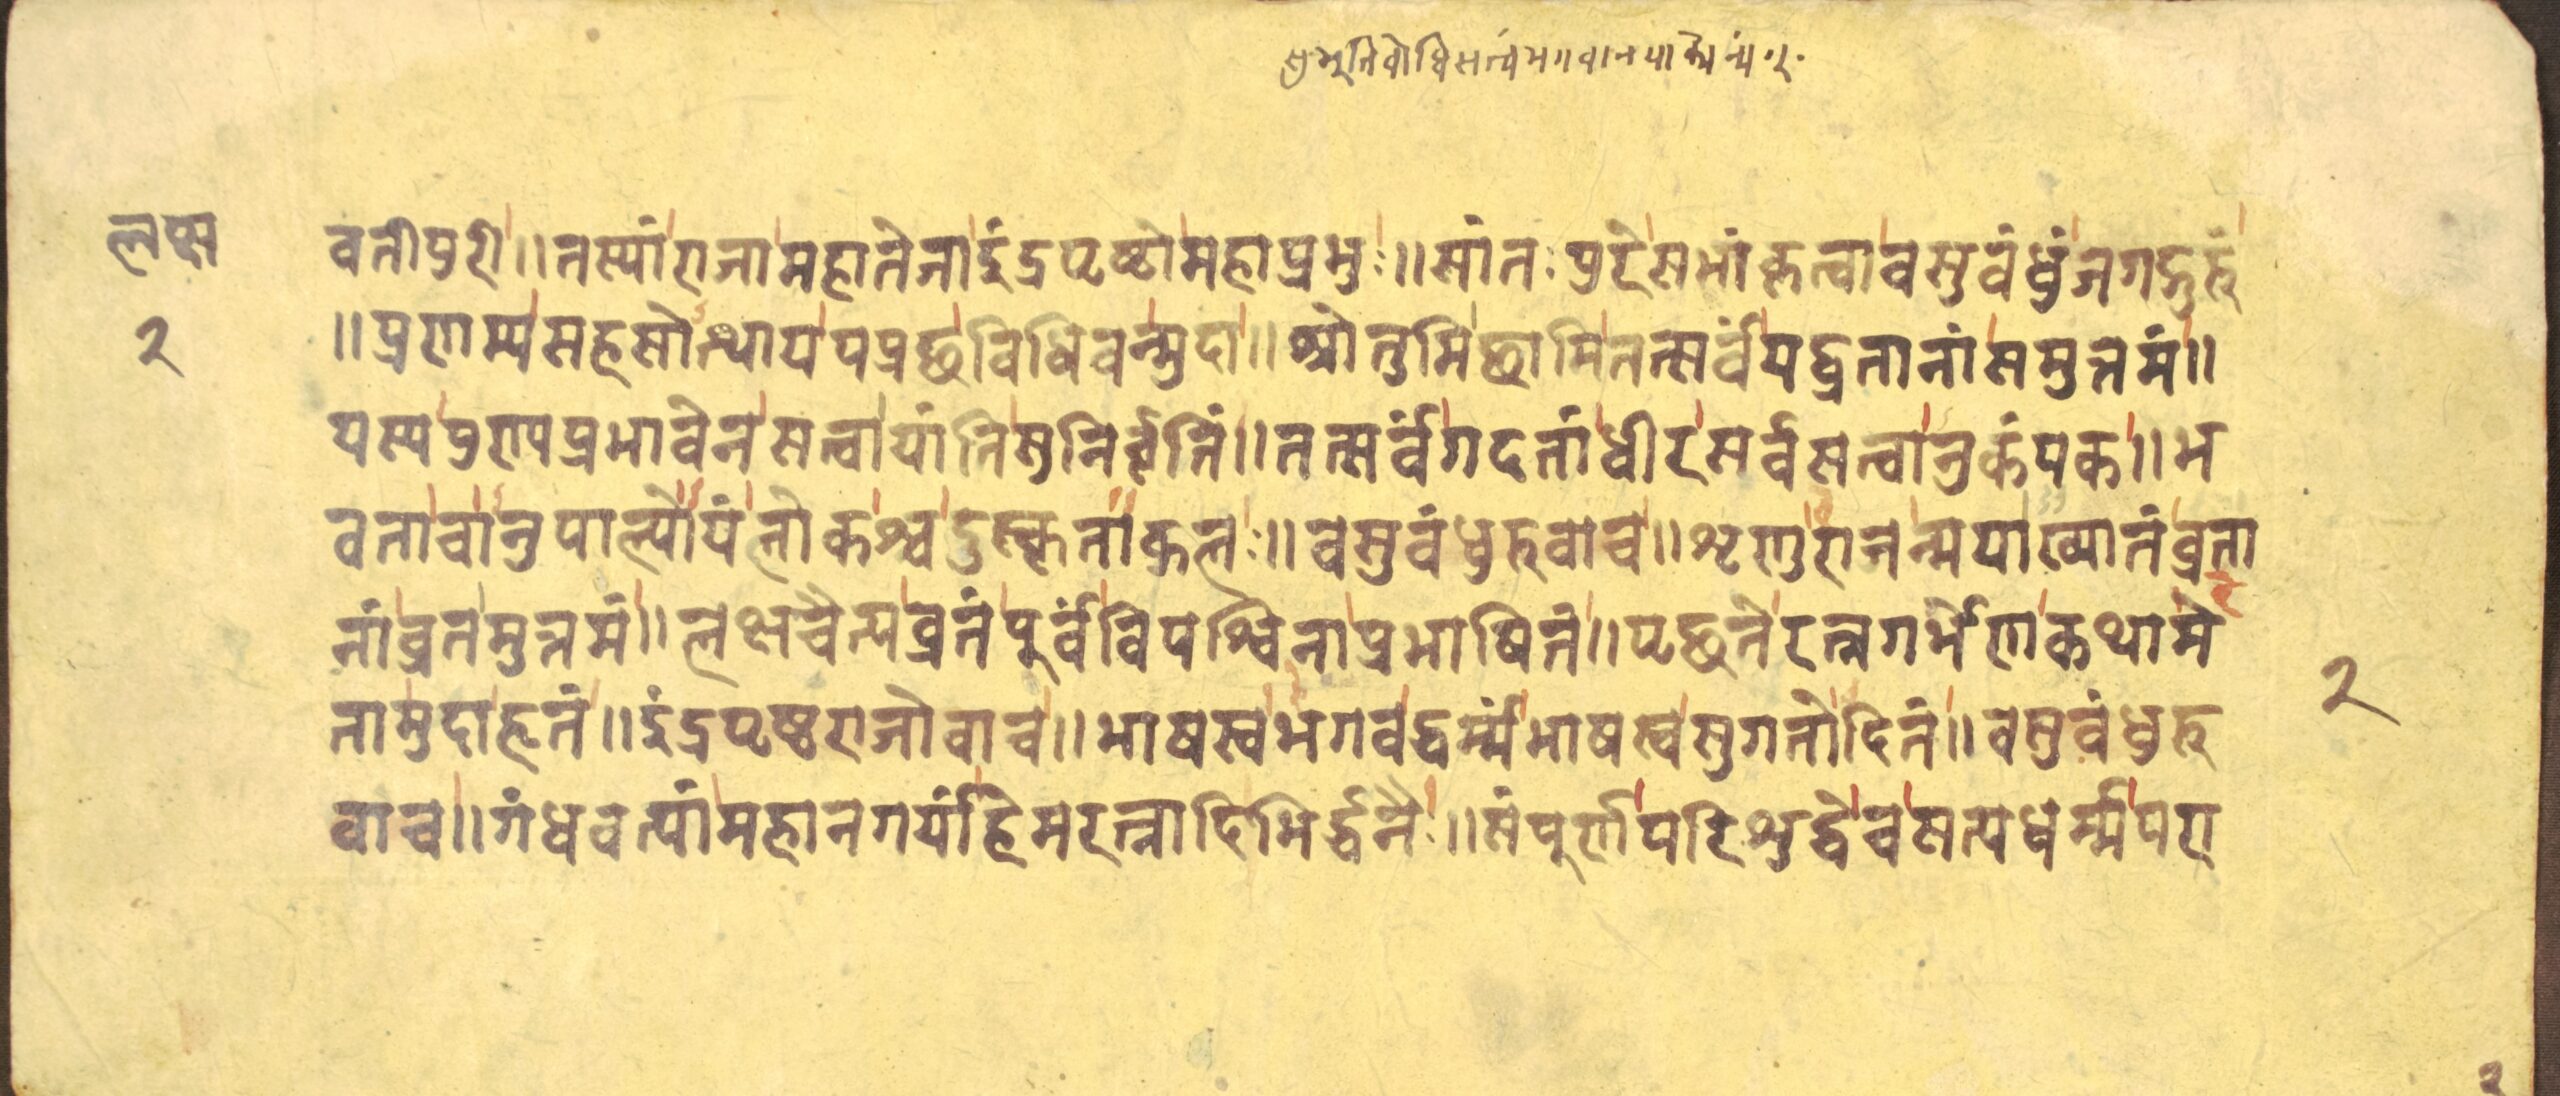 लक्ष
२
वतीपुरी॥तस्यांराजामहातेजाइंद्रपृष्ठोमहाप्रभुः॥सांतःपुरेसभांकृत्वावसुवंधुंजगद्गुरुं
॥प्रणम्यसहसोत्थायपप्रछविधिवन्मुदा॥श्रोतुमिछामितत्सर्वंयद्व्रतानांसमुत्तमं॥
यस्यपुण्यप्रभावेनसत्वायांतिसुनिर्वृतिं॥तत्सर्वंगदतांधीरसर्वसत्वानुकंपक॥भ
वताचानुपाल्योयंलोकश्चदुस्कृताकुलः॥वसुवंधुरुवाच॥शृणुराजन्मयाख्यातंव्रता
नांव्रतमुत्तमं॥लक्षचैत्यव्रतंपूर्वंविपश्चिनाप्रभाषितं॥पृछतेरत्नगर्भेणकथामे
तामुदाहृतं॥इंद्रपृष्ठराजोवाच॥भाषस्वभगवद्धर्म्मंभाषस्वसुगतोदितं॥वसुवंधुरु
वाच॥गंधवत्यांमहानगर्यांहेमरत्नादिभिर्द्धनैः॥संपूर्णेपरिशुद्धेचसत्यधर्म्मपरा
२
२